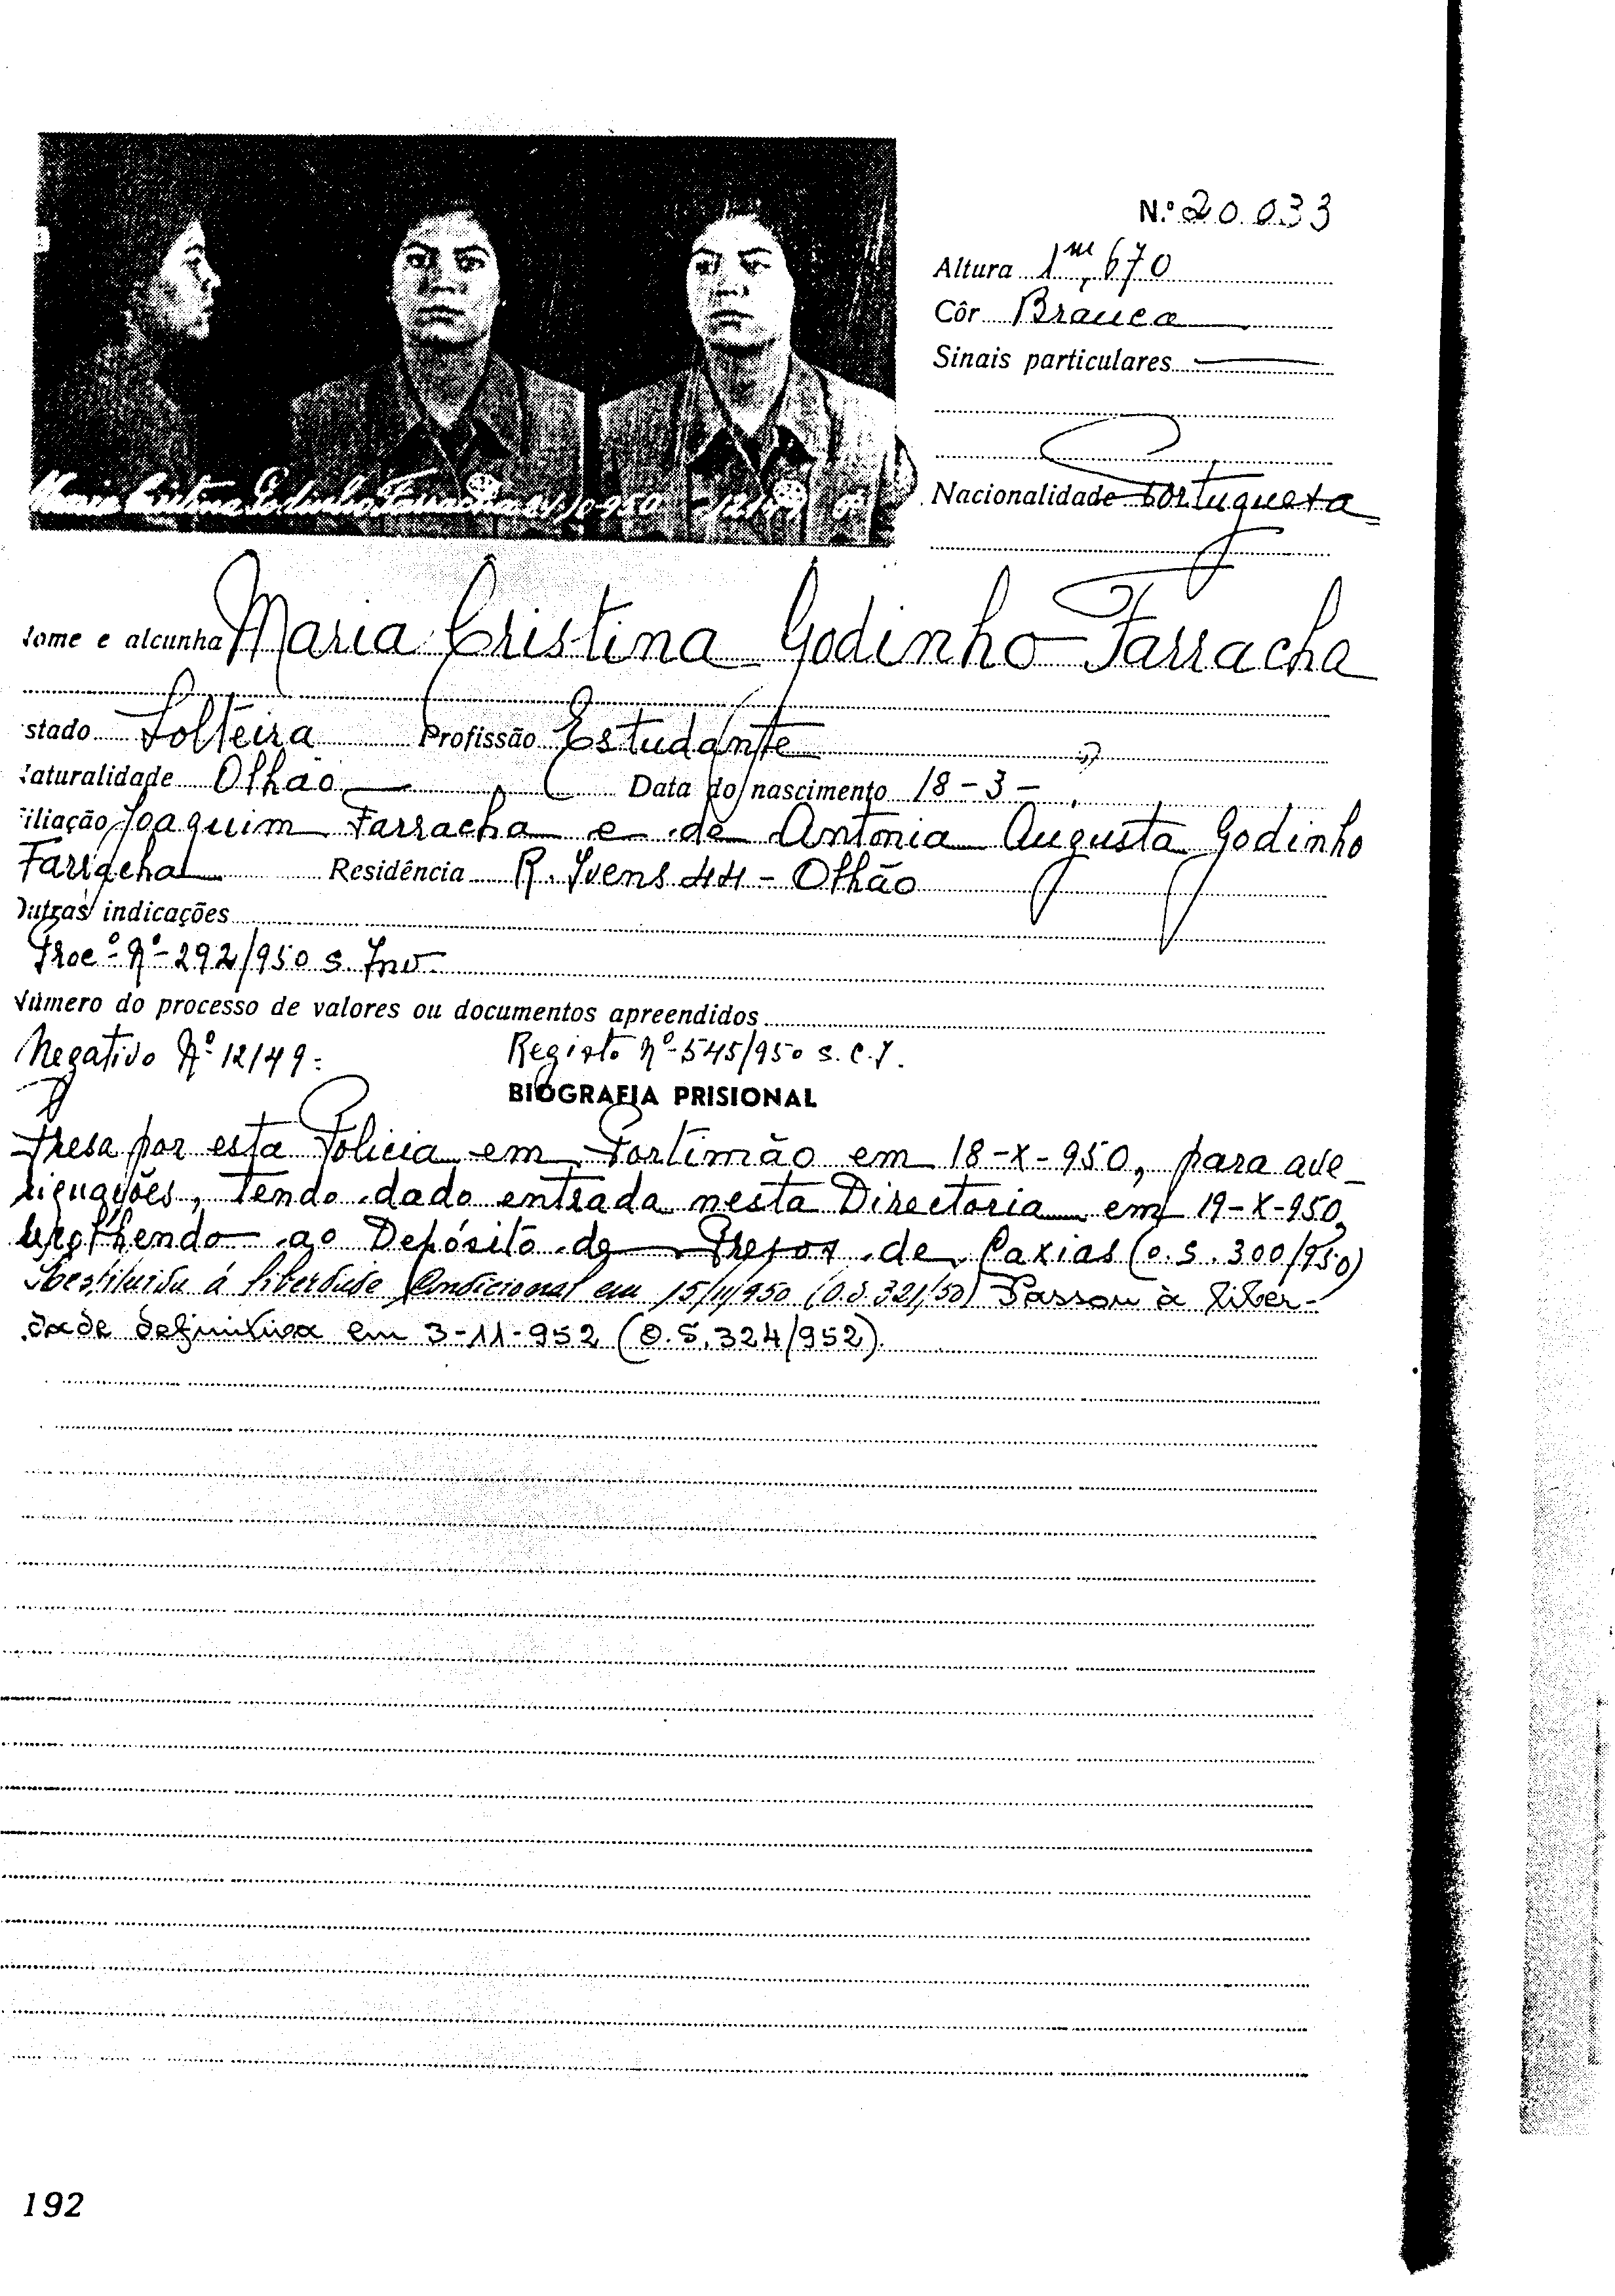 N.º 20.033
Altura 1m,670
Côr Branca
Sinais particulares
Nacionalidade Portuguesa
Maria Cristina Godinho Farracha 950
ome e alcunha Maria Cristina Godinho Farracha
stado Solteira Profissão Estudante
aturalidade Olhão Data do nascimento 18-3-
iliação Joaquim Farracha e de Antonia Augusta Godinho
Farracha Residência R. Ivens 44 - Olhão
Outras indicações
Proc.º Nº 292/950 S. Inv.
Número do processo de valores ou documentos apreendidos
Negativo Nº 12149. Registo Nº 545/950 S.C.I.
BIOGRAFIA PRISIONAL
Presa por esta Policia em Portimão em 18-X-950, para ave-
riguações, tendo dado entrada nesta Directoria em 19-X-950,
recolhendo ao Depósito de Presos de Caxias (O.S. 300/950)
Restituida á liberdade Condicional em 15/11/950 (O.S. 321/50) Passou à liber-
dade definitiva em 3-11-952 (O.S. 324/952).
192